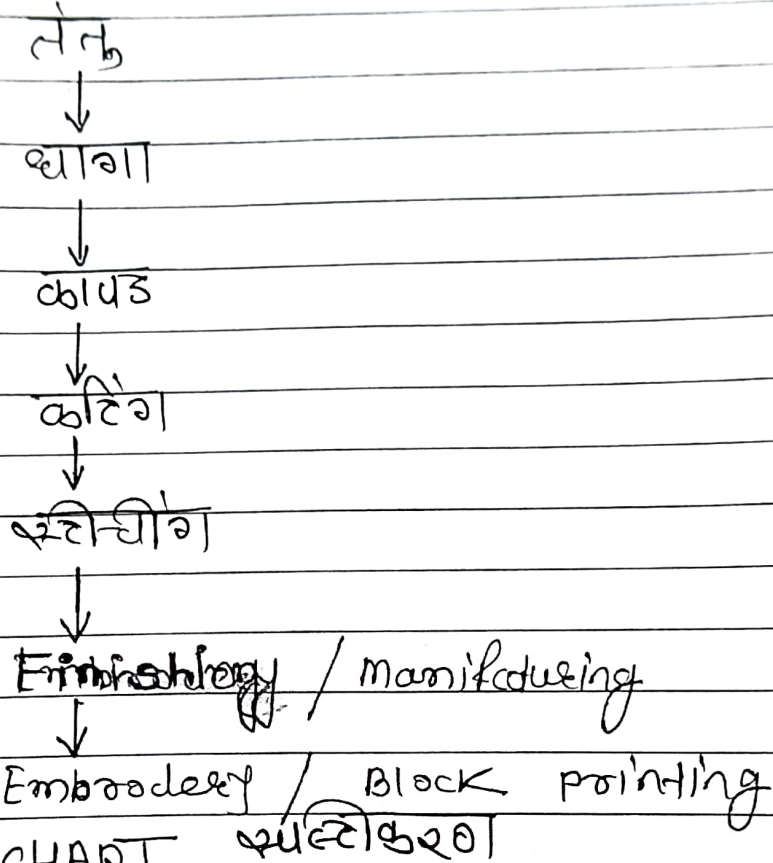 तंतु
धागा
कापड
कटिंग
स्टीचींग
Finishing / Manifcturing
Embrodery / Block printing
CHART स्पष्टीकरण